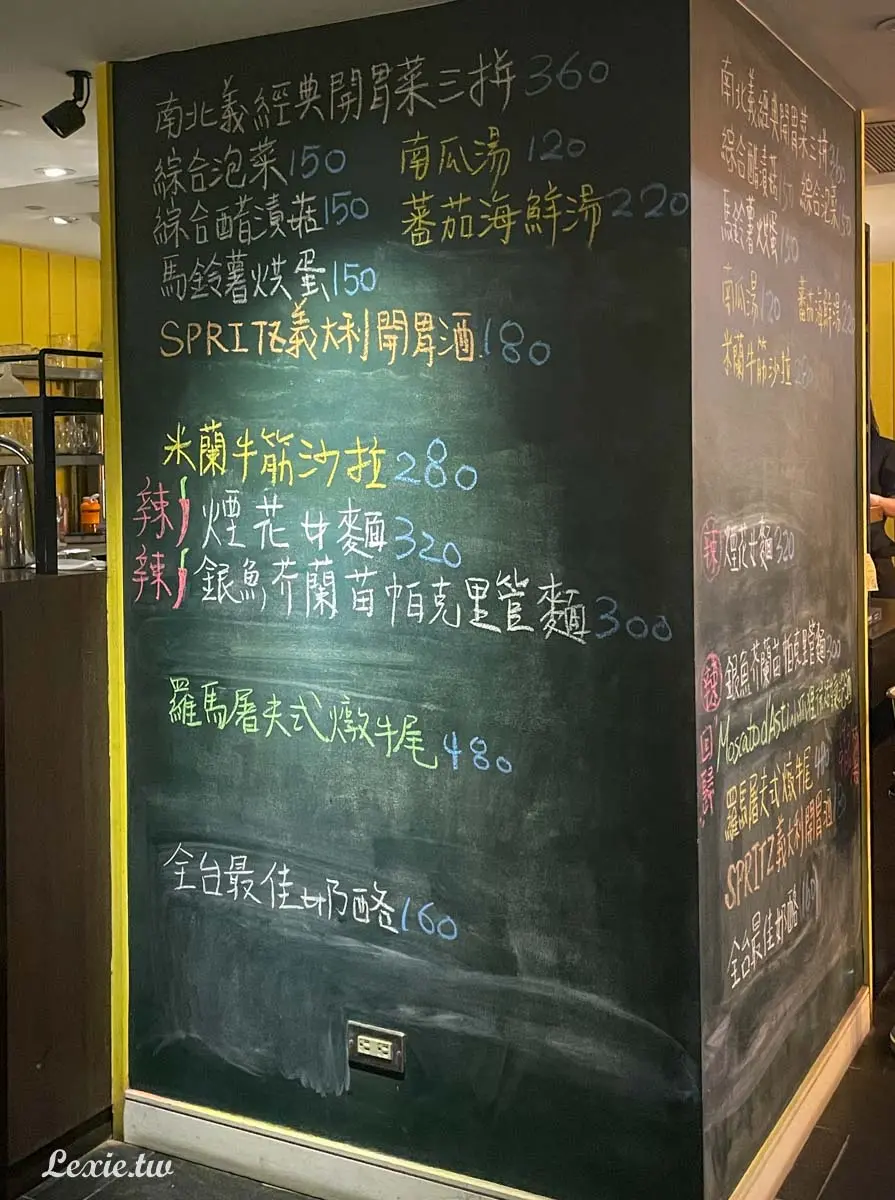 南北義經典開胃菜三拼360
綜合泡菜150 南瓜湯 120
綜合醋漬菇150 蕃茄海鮮湯220
馬鈴薯烘蛋150
SPRITZ義大利開胃酒180
米蘭牛筋沙拉280
辣 煙花女麵320
辣 銀魚芥蘭苗帕克里管麵300
羅馬屠夫式燉牛尾480
全台最佳奶酪160
南北義經典開胃菜三拼360
綜合醋漬菇150 綜合泡菜150
馬鈴薯烘蛋150
南瓜湯120 蕃茄海鮮湯220
米蘭牛筋沙拉280
辣 煙花女麵320
辣 銀魚芥蘭苗帕克里管麵300
回歸 Moscato d'Asti
羅馬屠夫式燉牛尾480
SPRITZ義大利開胃酒
全台最佳奶酪160
Lexie.tw